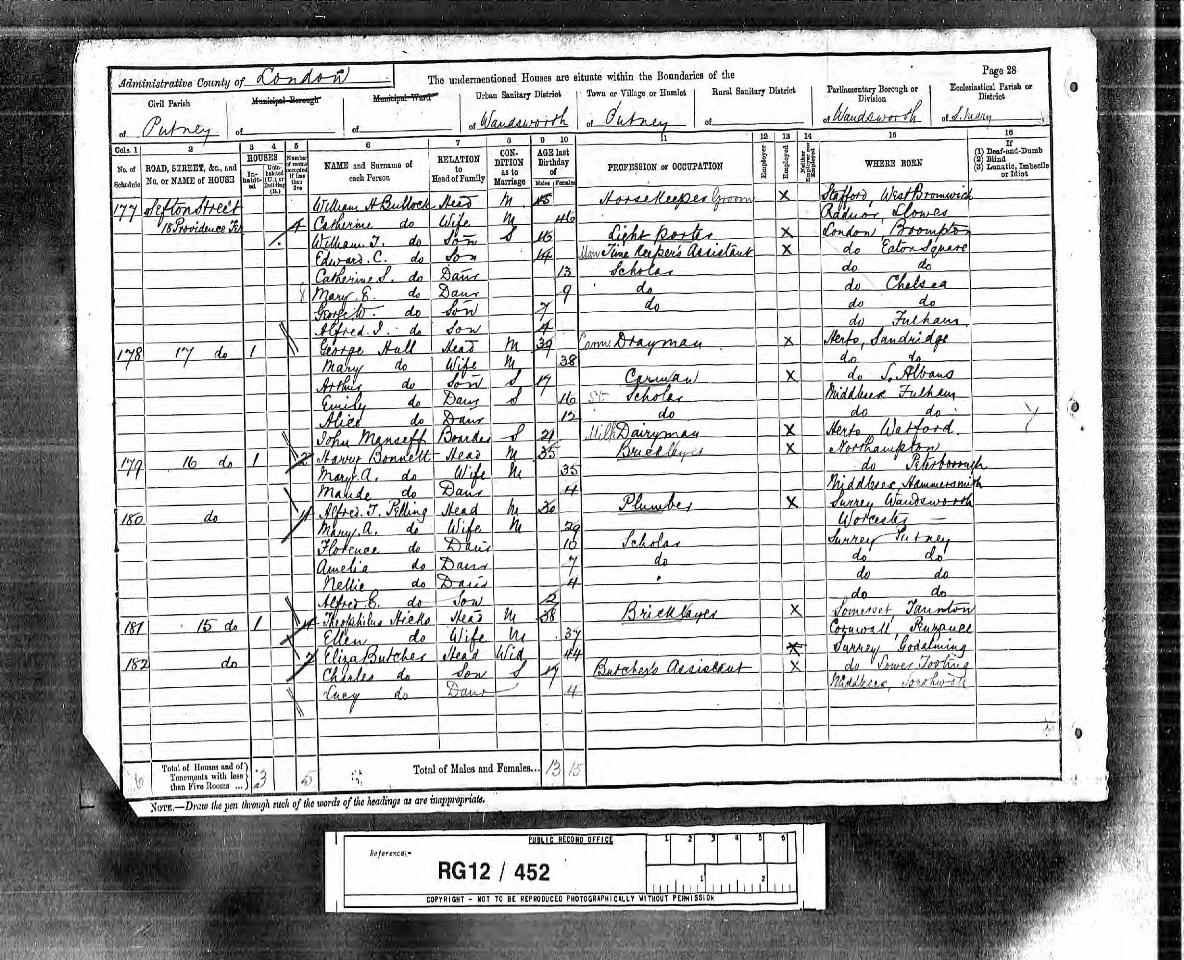 Administrative County of London
The undermentioned Houses are situate within the Boundaries of the
Page 28
Civil Parish Municipal Borough Municipal Ward Urban Sanitary District Town or Village or Hamlet Rural Sanitary District Parliamentary Borough or Division Ecclesiastical Parish or District
of Putney of of of Wandsworth of Putney of of Wandsworth of S. Mary
Cols. 1 2 3 4 5 6 7 8 9 10 11 12 13 14 15 16
No. of Schedule ROAD, STREET, &c., and No. or NAME of HOUSE HOUSES Inhabited Uninhabited (U.), or Building (B.) Number of rooms occupied if less than five NAME and Surname of each Person RELATION to Head of Family CONDITION as to Marriage AGE last Birthday of Males Females PROFESSION or OCCUPATION Employer Employed Neither Employer nor Employed WHERE BORN If (1) Deaf-and-Dumb (2) Blind (3) Lunatic, Imbecile or Idiot
177 Sefton Street William H Bullock Head M 45 Horsekeeper Groom X Stafford, West Bromwich
18 Providence 4 Catherine do Wife M 46 Radnor
William T. do Son S 16 Light Porter X London Brompton
Edward C. do Son 14 Time Keeper's Assistant X do Eaton Square
Catherine S. do Daur 13 Scholar do do
Mary E. do Daur 9 do do Chelsea
George W. do Son 7 do do do
Alfred J. do Son 4 do Fulham
178 17 do 1 George Hull Head M 39 Drayman X Herts, Sandridge
Mary do Wife M 38 do do
Arthur do Son S 17 Carman X do S. Albans
Emily do Daur S 16 Scholar Middlesex Fulham
Alice do Daur 12 do do do
John Manseff Boarder S 21 Milk Dairyman X Herts Watford
179 16 do 1 2 Harry Bonnett Head M 35 Bricklayer X Northampton
Mary A. do Wife M 35 do Peterborough
Maude do Daur 4 Middlesex, Hammersmith
180 do 4 Alfred T. Pilling Head M 30 Plumber X Surrey Wandsworth
Mary A. do Wife M 29 Worcester
Florence do Daur 10 Scholar Surrey Putney
Amelia do Daur 7 do do do
Nellie do Daur 4 do do
Alfred E. do Son 2 do do
181 15 do 1 4 Theophilus Hicks Head M 38 Bricklayer X Somerset Taunton
Ellen do Wife M 37 Cornwall Penzance
182 do 2 Eliza Butcher Head Wid 44 X Surrey Godalming
Charles do Son S 17 Butcher's Assistant X do Lower Tooting
Lucy do Daur 4 Middlesex,
6 Total of Houses and of Tenements with less than Five Rooms ... 3 5 Total of Males and Females... 13 15
NOTE.—Draw the pen through such of the words of the headings as are inappropriate.
PUBLIC RECORD OFFICE
Reference:-
RG12 / 452
1 2 3 4 5 6
1 2
COPYRIGHT - NOT TO BE REPRODUCED PHOTOGRAPHICALLY WITHOUT PERMISSION